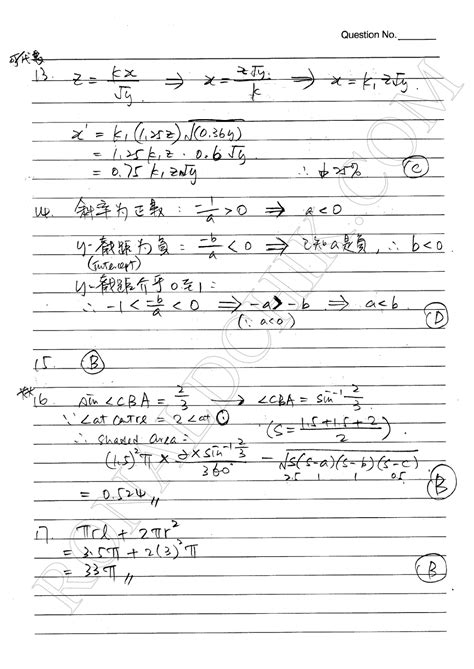 Question No.
可代數
13. z = kx/√y ⇒ x = z√y/k ⇒ x = k₁z√y
x' = k₁(1.25z)√(0.36y)
= 1.25k₁z · 0.6√y
= 0.75k₁z√y ∴ ↓25% (C)
14. 斜率為正數 : -1/a > 0 ⇒ a < 0
y-截距為負 : -b/a < 0 ⇒ 已知a是負, ∴ b < 0
(Intercept)
y-截距介乎0至1:
∴ -1 < -b/a < 0 ⇒ -a > -b ⇒ a < b
(∵ a<0) (D)
15. (B)
** 16. sin∠CBA = 2/3 → ∠CBA = sin⁻¹ 2/3
∵ ∠at centre = 2∠at ⊙
∴ shaded area = (S = (1.5+1.5+2)/2)
(1.5)²π × (2×sin⁻¹ 2/3)/360° - √S(S-a)(S-b)(S-c)
2.5 1 1 0.5
= 0.524 (B)
17. πrl + 2πr²
= 3.5π + 2(3)²π
= 33π (B)
RONALDCHIK.COM